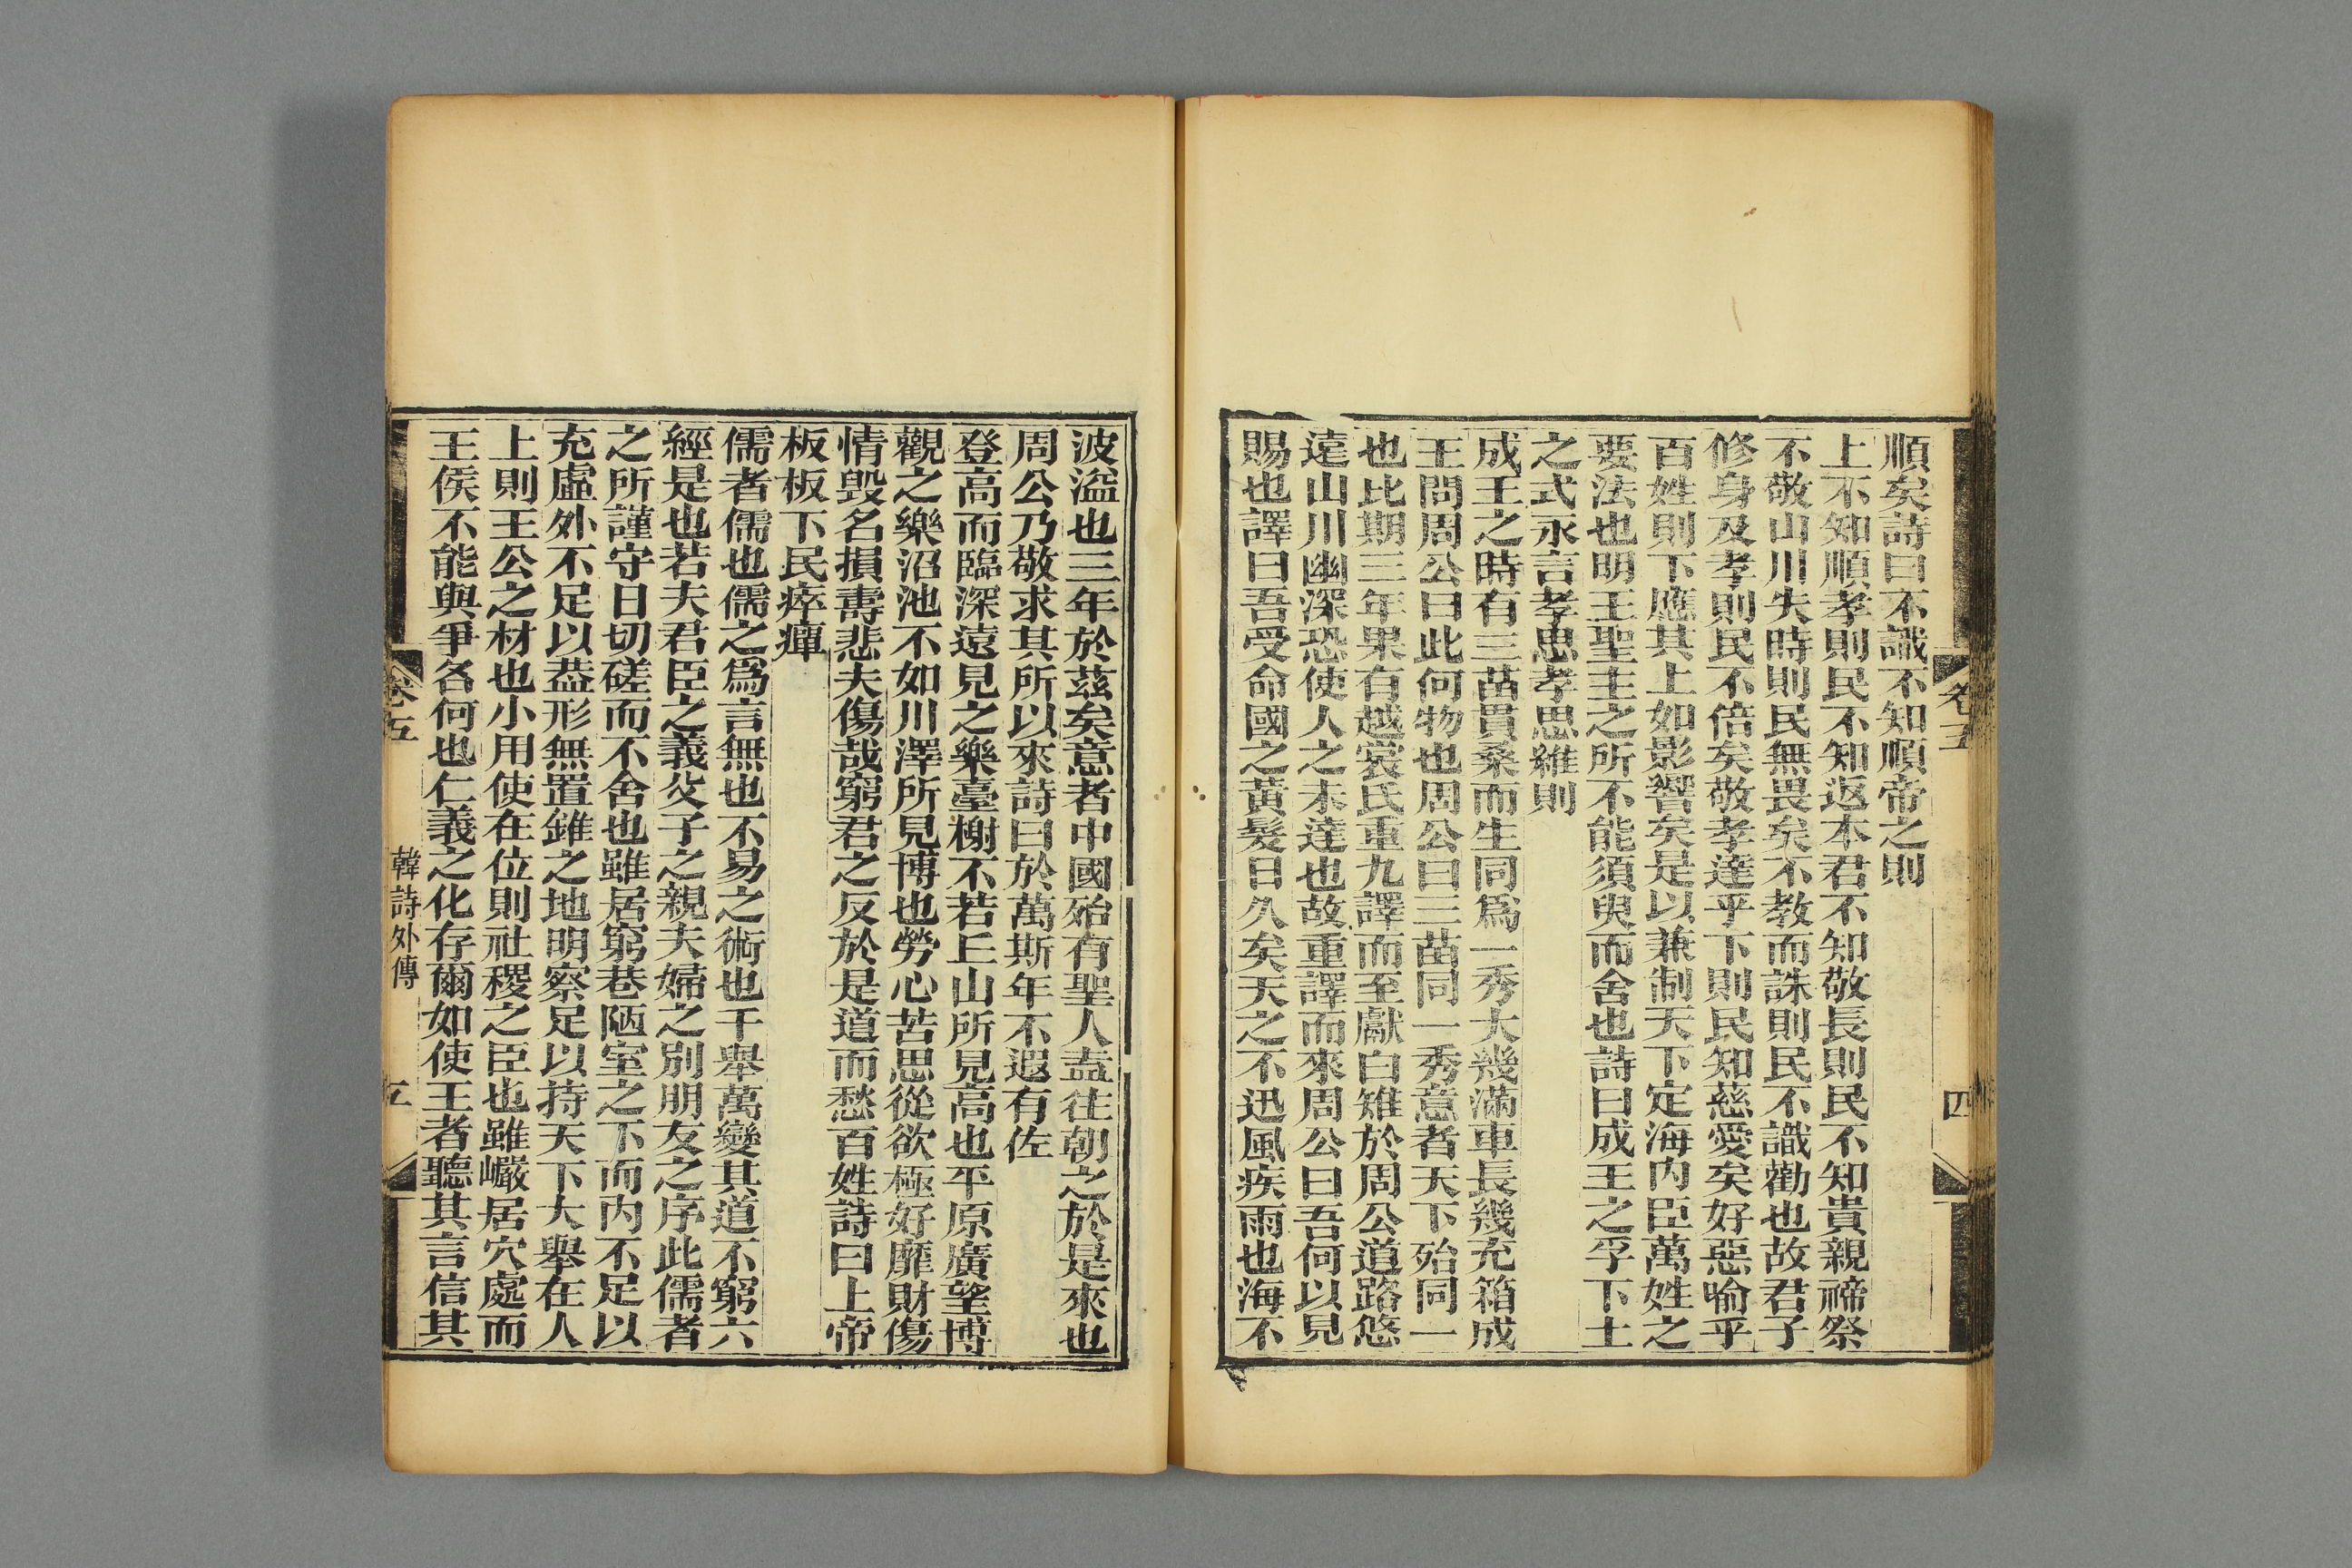 卷五
四
順矣詩曰不識不知順帝之則
上不知順孝則民不知返本君不知敬長則民不知貴親禘祭
不敬山川失時則民無畏矣不教而誅則民不識勸也故君子
修身及孝則民不倍矣敬孝達乎下則民知慈愛矣好惡喻乎
百姓則下應其上如影響矣是以兼制天下定海內臣萬姓之
要法也明王聖主之所不能須臾而舍也詩曰成王之孚下土
之式永言孝思孝思維則
成王之時有三苗貫桑而生同爲一秀大幾滿車長幾充箱成
王問周公曰此何物也周公曰三苗同一秀意者天下殆同一
也比期三年果有越裳氏重九譯而至獻白雉於周公道路悠
遠山川幽深恐使人之未達也故重譯而來周公曰吾何以見
賜也譯曰吾受命國之黃髮日久矣天之不迅風疾雨也海不
波溢也三年於茲矣意者中國殆有聖人盍往朝之於是來也
周公乃敬求其所以來詩曰於萬斯年不遐有佐
登高而臨深遠見之樂臺榭不若丘山所見高也平原廣望博
觀之樂沼池不如川澤所見博也勞心苦思從欲極好靡財傷
情毀名損壽悲夫傷哉窮君之反於是道而愁百姓詩曰上帝
板板下民瘁癉
儒者儒也儒之爲言無也不易之術也千舉萬變其道不窮六
經是也若夫君臣之義父子之親夫婦之別朋友之序此儒者
之所謹守日切磋而不舍也雖居窮巷陋室之下而內不足以
充虛外不足以葢形無置錐之地明察足以持天下大舉在人
上則王公之材也小用使在位則社稷之臣也雖巖居穴處而
王侯不能與爭各何也仁義之化存爾如使王者聽其言信其
卷五
韓詩外傳
五